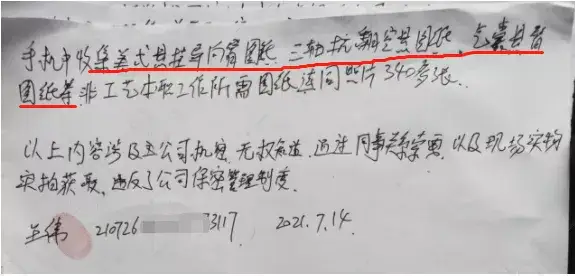 手机中收集美式 图纸 三轴抗 图纸、气囊
图纸等非工艺本职工作所需图纸连同照片340多张。
以上内容涉及 公司机密,无权知道,通过同事关系索要,以及现场实物
实拍获取,违反了公司保密管理制度。
王伟 210726 3117 2021.7.14